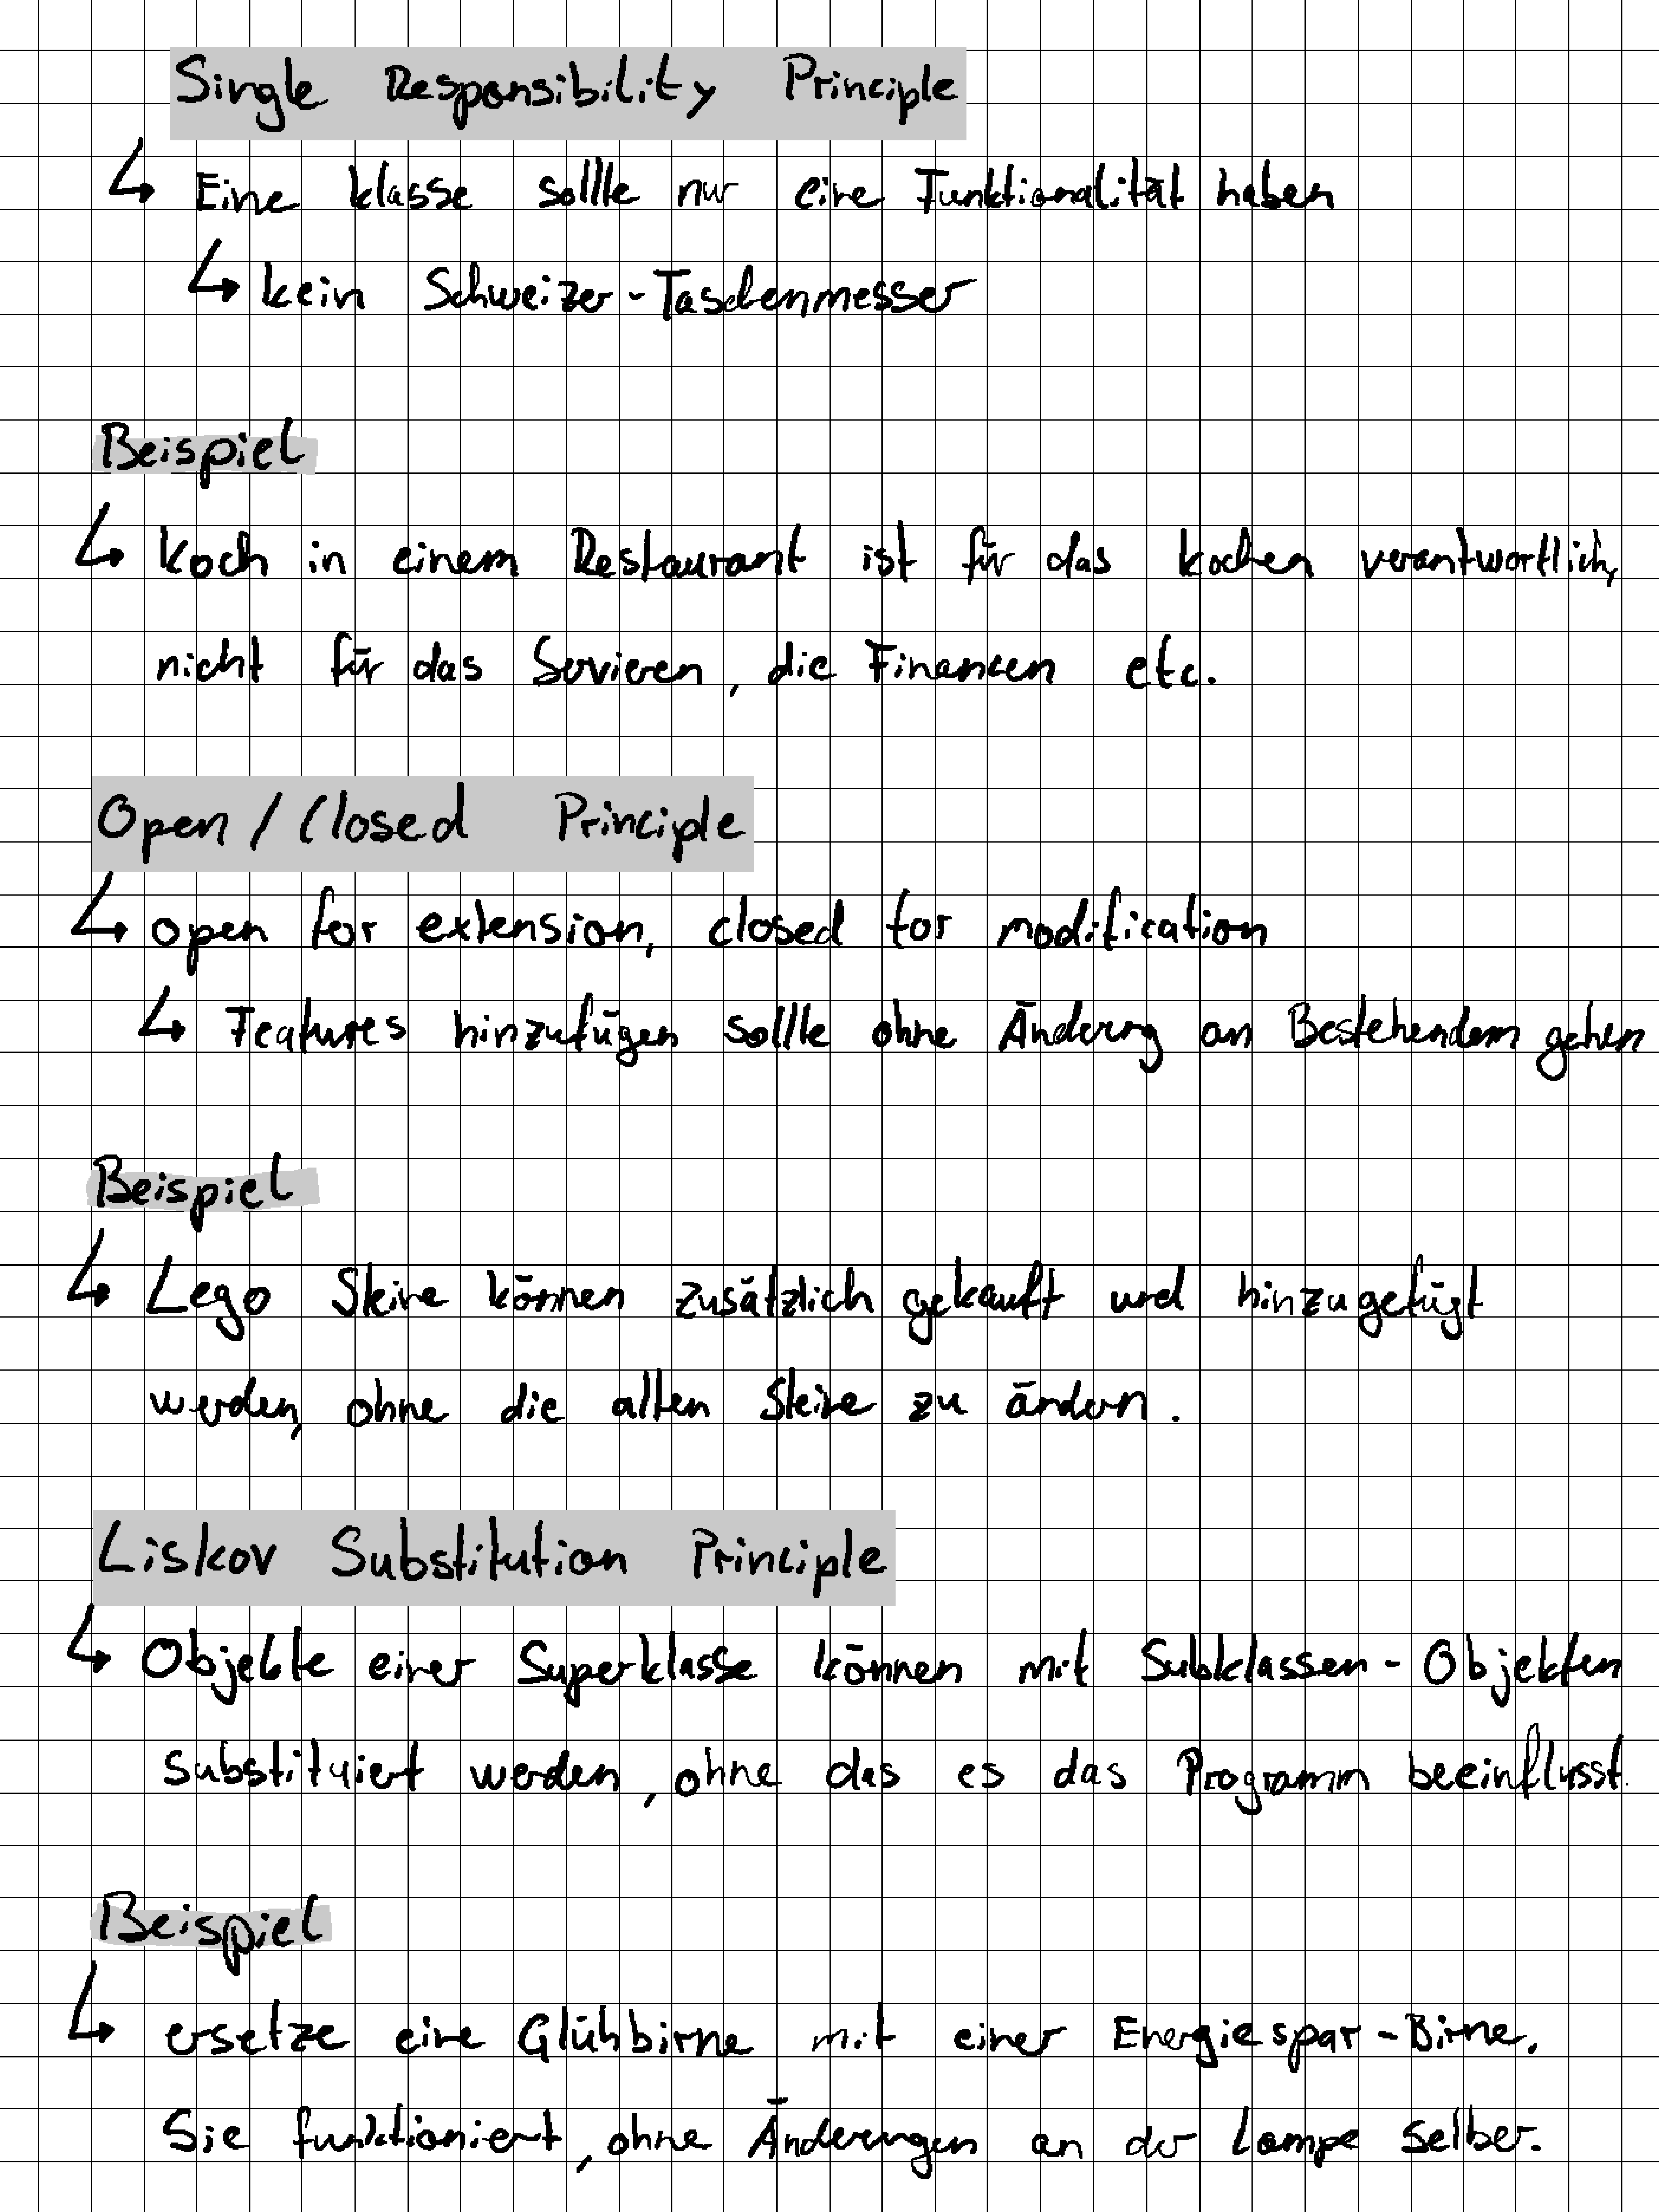 Single Responsibility Principle
↳ Eine klasse sollte nur eine Funktionalität haben
↳ kein Schweizer-Taschenmesser
Beispiel
↳ Koch in einem Restaurant ist für das kochen verantwortlich,
nicht für das Servieren, die Finanzen etc.
Open / Closed Principle
↳ open for extension, closed for modification
↳ Features hinzufügen sollte ohne Änderung an Bestehendem gehen
Beispiel
↳ Lego Steine können zusätzlich gekauft und hinzugefügt
werden, ohne die alten Steine zu ändern.
Liskov Substitution Principle
↳ Objekte einer Superklasse können mit Subklassen-Objekten
substituiert werden, ohne das es das Programm beeinflusst.
Beispiel
↳ ersetze eine Glühbirne mit einer Energiespar-Birne.
Sie funktioniert, ohne Änderungen an der Lampe selber.